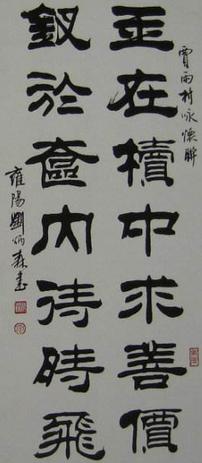 賈雨村咏懷聯
玉在櫝中求善價
釵於奩内待時飛
雍陽劉炳森書